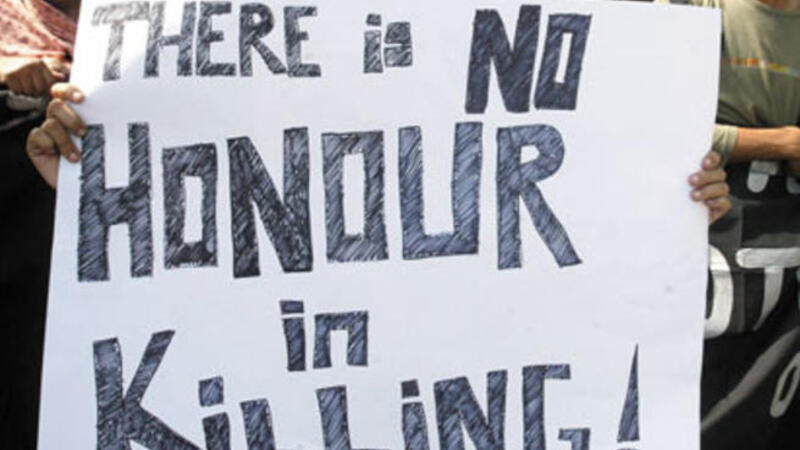 THERE is NO
HONOUR
in
KiLLiNG!